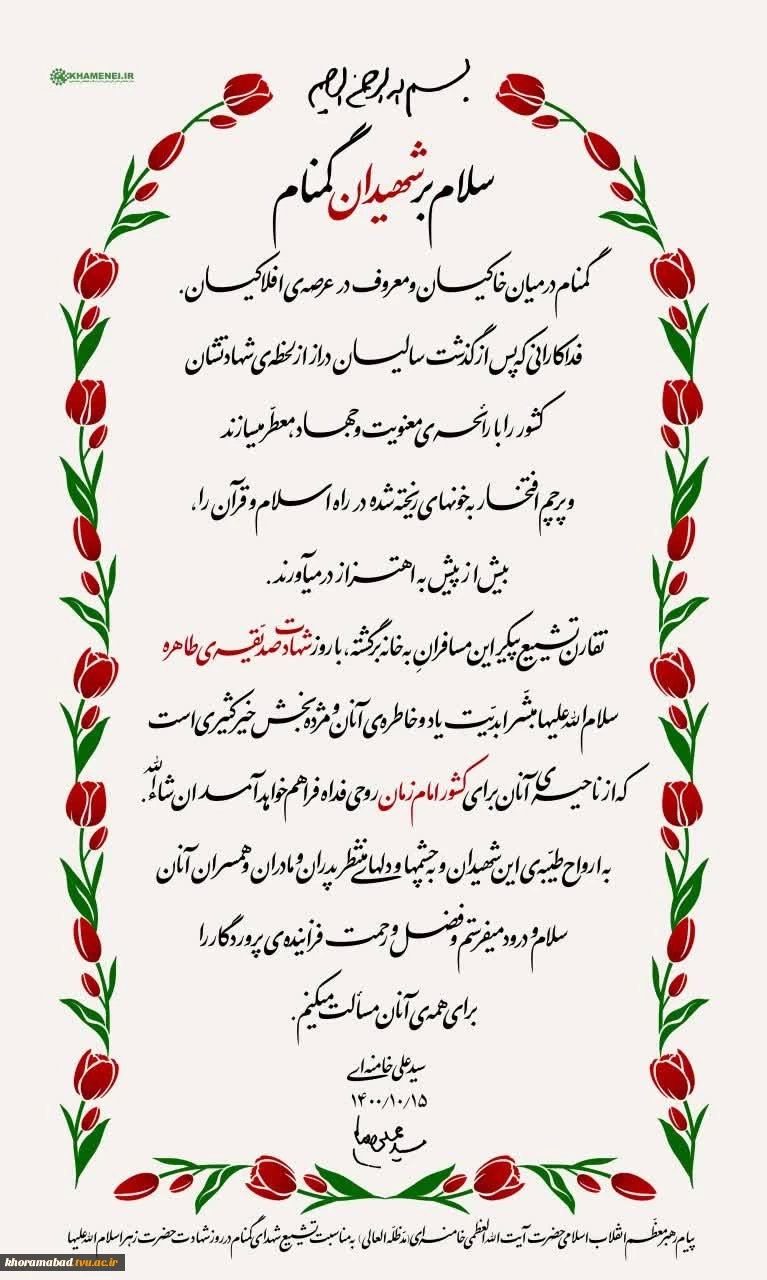 KHAMENEI.IR
بسم الله الرحمن الرحیم
سلام بر شهیدان گمنام
گمنام در میان خاکیان و معروف در عرصه‌ی افلاکیان.
فداکارانی که پس از گذشت سالیان دراز از لحظه‌ی شهادتشان
کشور را با رائحه‌ی معنویت و جهاد، معطّر میسازند
و پرچم افتخار به خونهای ریخته شده در راه اسلام و قرآن را،
بیش از پیش به اهتزاز درمیآورند.
تقارن تشییع پیکر این مسافرانِ به خانه برگشته، با روز شهادت صدّیقه‌ی طاهره
سلام‌الله‌علیها مبشّر ابدیّت یاد و خاطره‌ی آنان و مژده بخش خیر کثیری است
که از ناحیه‌ی آنان برای کشور امام زمان روحی فداه فراهم خواهد آمد ان شاءالله.
به ارواح طیّبه‌ی این شهیدان و به چشمها و دلهای منتظر پدران و مادران و همسران آنان
سلام و درود میفرستم و فضل و رحمت فزاینده‌ی پروردگار را
برای همه‌ی آنان مسألت میکنم.
سیدعلی خامنه‌ای
۱۴۰۰/۱۰/۱۵
پیام رهبر معظّم انقلاب اسلامی حضرت آیت الله العظمی خامنه‌ای (مدّظلّه العالی) به مناسبت تشییع شهدای گمنام در روز شهادت حضرت زهرا سلام الله علیها
khoramabad.tvu.ac.ir